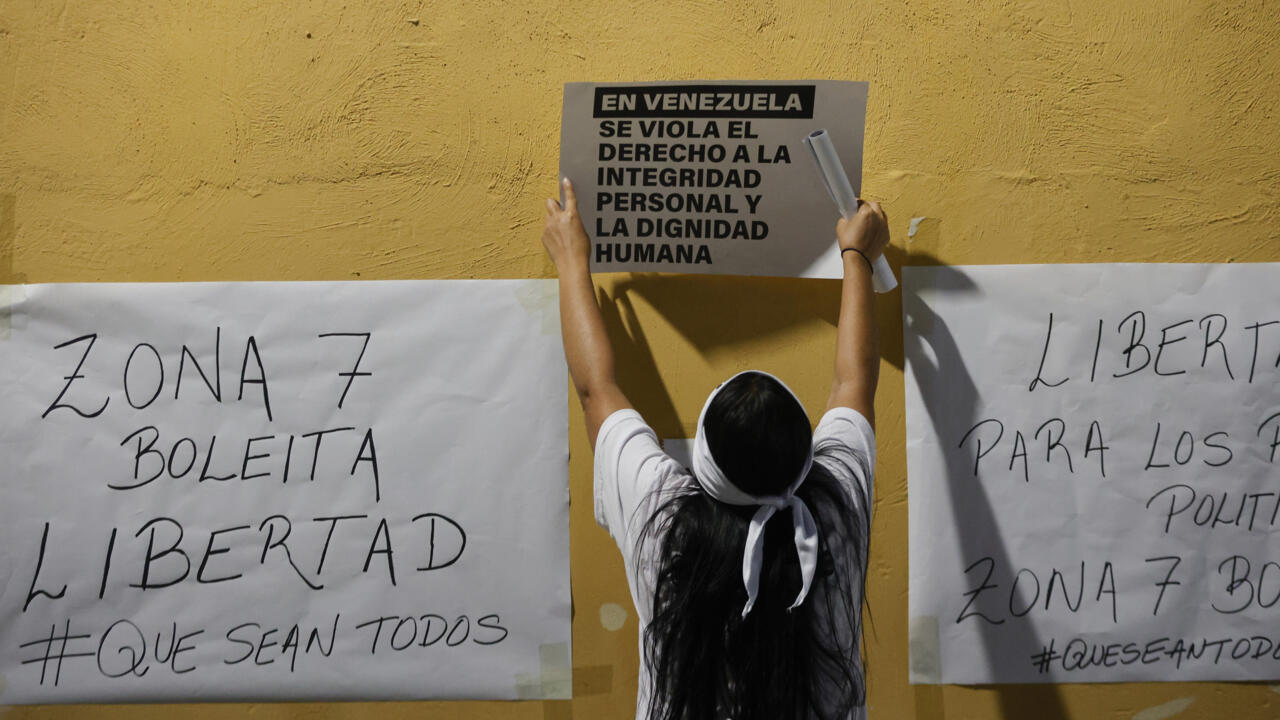 EN VENEZUELA
SE VIOLA EL
DERECHO A LA
INTEGRIDAD
PERSONAL Y
LA DIGNIDAD
HUMANA
ZONA 7
BOLEITA
LIBERTAD
#QUE SEAN TODOS
LIBERTA
PARA LOS
POLITI
ZONA 7 BO
#QUESEANTODO